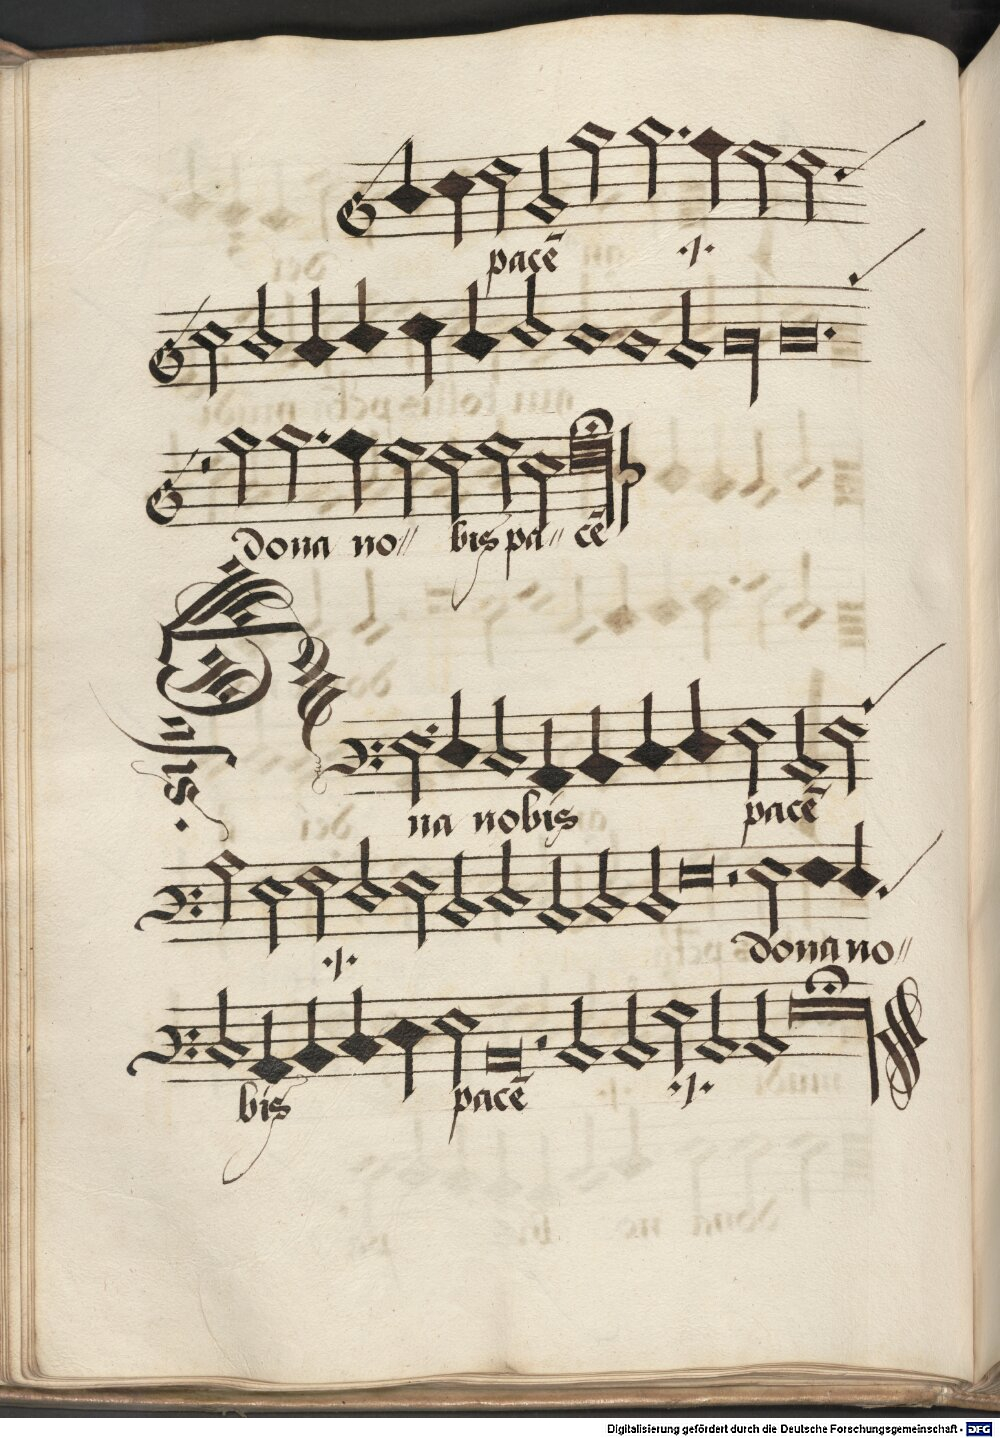 pacē ·/·
dona no// bis pa// cē
Bassus.
na nobis pacē
·/· dona no//
bis pacē ·/·
Digitalisierung gefördert durch die Deutsche Forschungsgemeinschaft - DFG